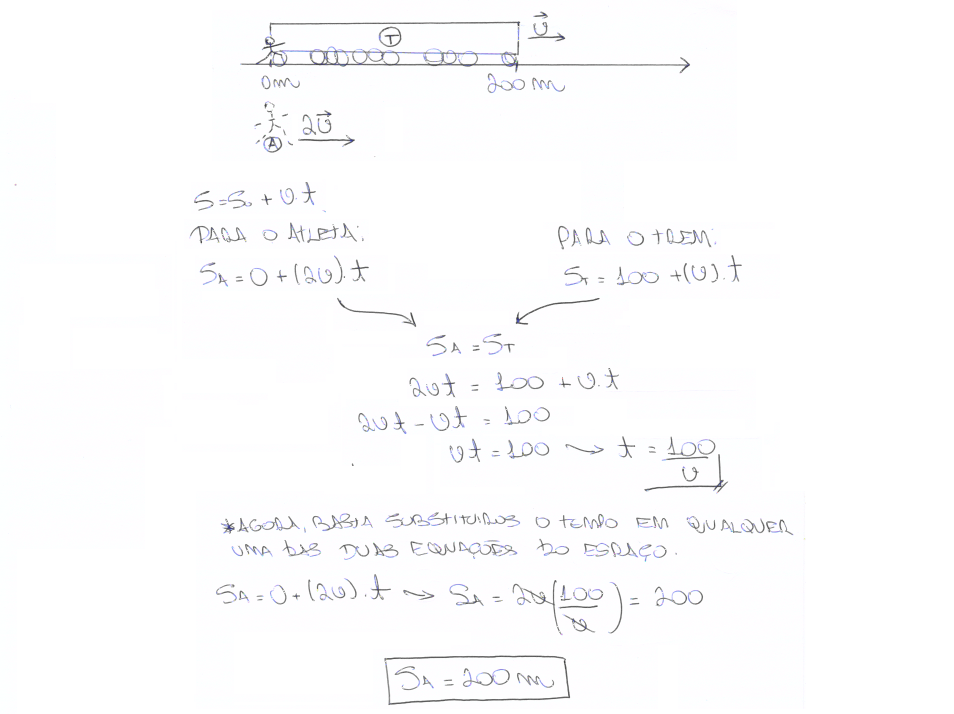 T
v⃗
0m 200 m
A 2v⃗
S=S₀ + v.t
PARA O ATLETA:
PARA O TREM:
S_A = 0 + (2v).t
S_T = 100 + (v).t
S_A = S_T
2vt = 100 + v.t
2vt - vt = 100
vt = 100 ⇝ t = 100/v
*AGORA, BASTA SUBSTITUIRMOS O TEMPO EM QUALQUER
UMA DAS DUAS EQUAÇÕES DO ESPAÇO.
S_A = 0 + (2v).t ⇝ S_A = 2v(100/v) = 200
S_A = 200 m